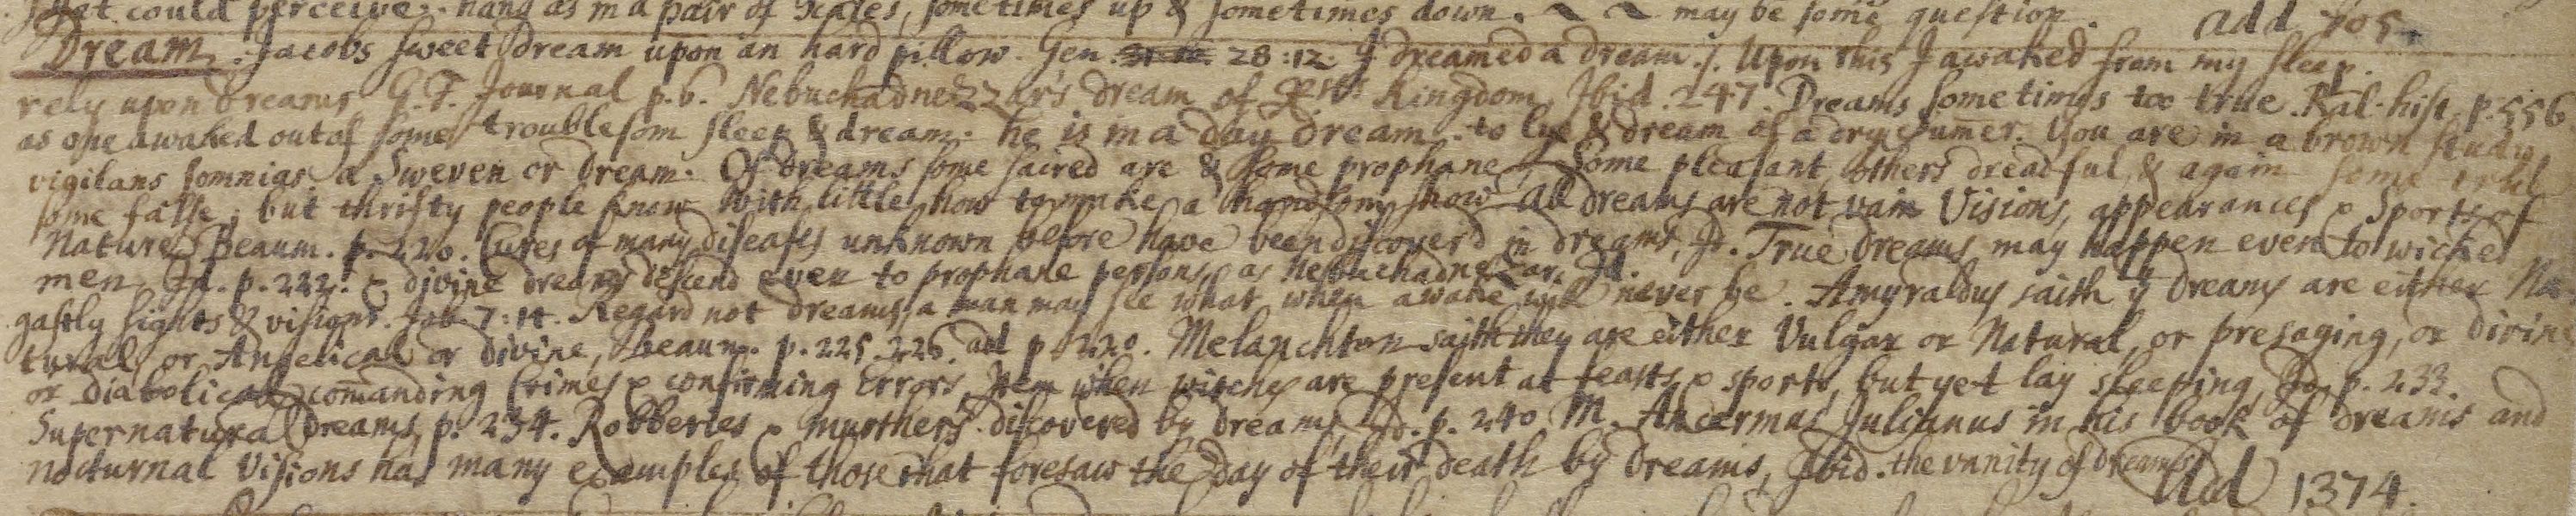 that could perceive. hang as in a pair of Scales, sometimes up & sometimes down. may be some question. add 705.
Dream. Jacobs sweet dream upon an hard pillow. Gen. 28:12. I dreamed a dream. Upon this I awaked from my sleep.
rely upon dreams G.F. Journal p.6. Nebuchadnezzar's dream of Kingdom Ibid. 247. Dreams sometimes too true. Ral. hist. p. 556
as one awaked out of some troublesom sleep & dream. he is in a day dream. to lye & dream of a dry sumer. You are in a brown study
vigilans somnias. a Sweven or Dream. Of dreams some sacred are & some prophane, Some pleasant, others dreadful, & again some true
some false; but thrifty people know with little how to make a handsom show All dreams are not vain Visions, appearances & Sports of
Nature, Beaum. p. 220. Cures of many diseases unknown before have been discoverd in dreams, Id. True dreams may happen even to wicked
men Id. p. 222. & divine dreams descend even to prophane persons, as Nebuchadnezzar. Id.
gastly sights & visions. Job. 7:14. Regard not dreams, a man may see what when awake will never be. Amyraldus saith yt dreams are either Na-
tural, or Angelical or divine, Beaum. p. 225. 226. add p. 220. Melanchton saith they are either Vulgar or Natural, or presaging, or divine
or diabolical comanding Crimes & confirming Errors, Item when witches are present at feasts & sports, but yet lay sleeping, Id. p. 233.
Supernatural Dreams, p. 234. Robberies & murthers discovered by dreams, Id. p. 240 M. Julianus in his book of dreams and
nocturnal Visions has many examples of those that foresaw the day of their death by dreams, Ibid. the vanity of dreams Add 1374.